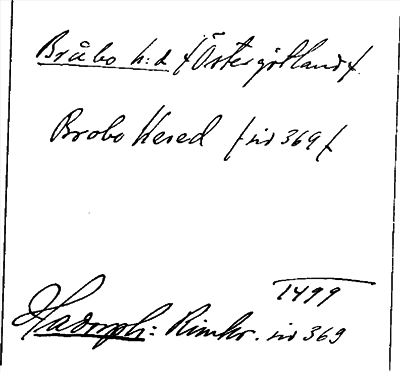 Bråbo h:d /Östergötland/.
Brobo Hered /sid 369/
1499
Hadorph: Rimkr. sid 369